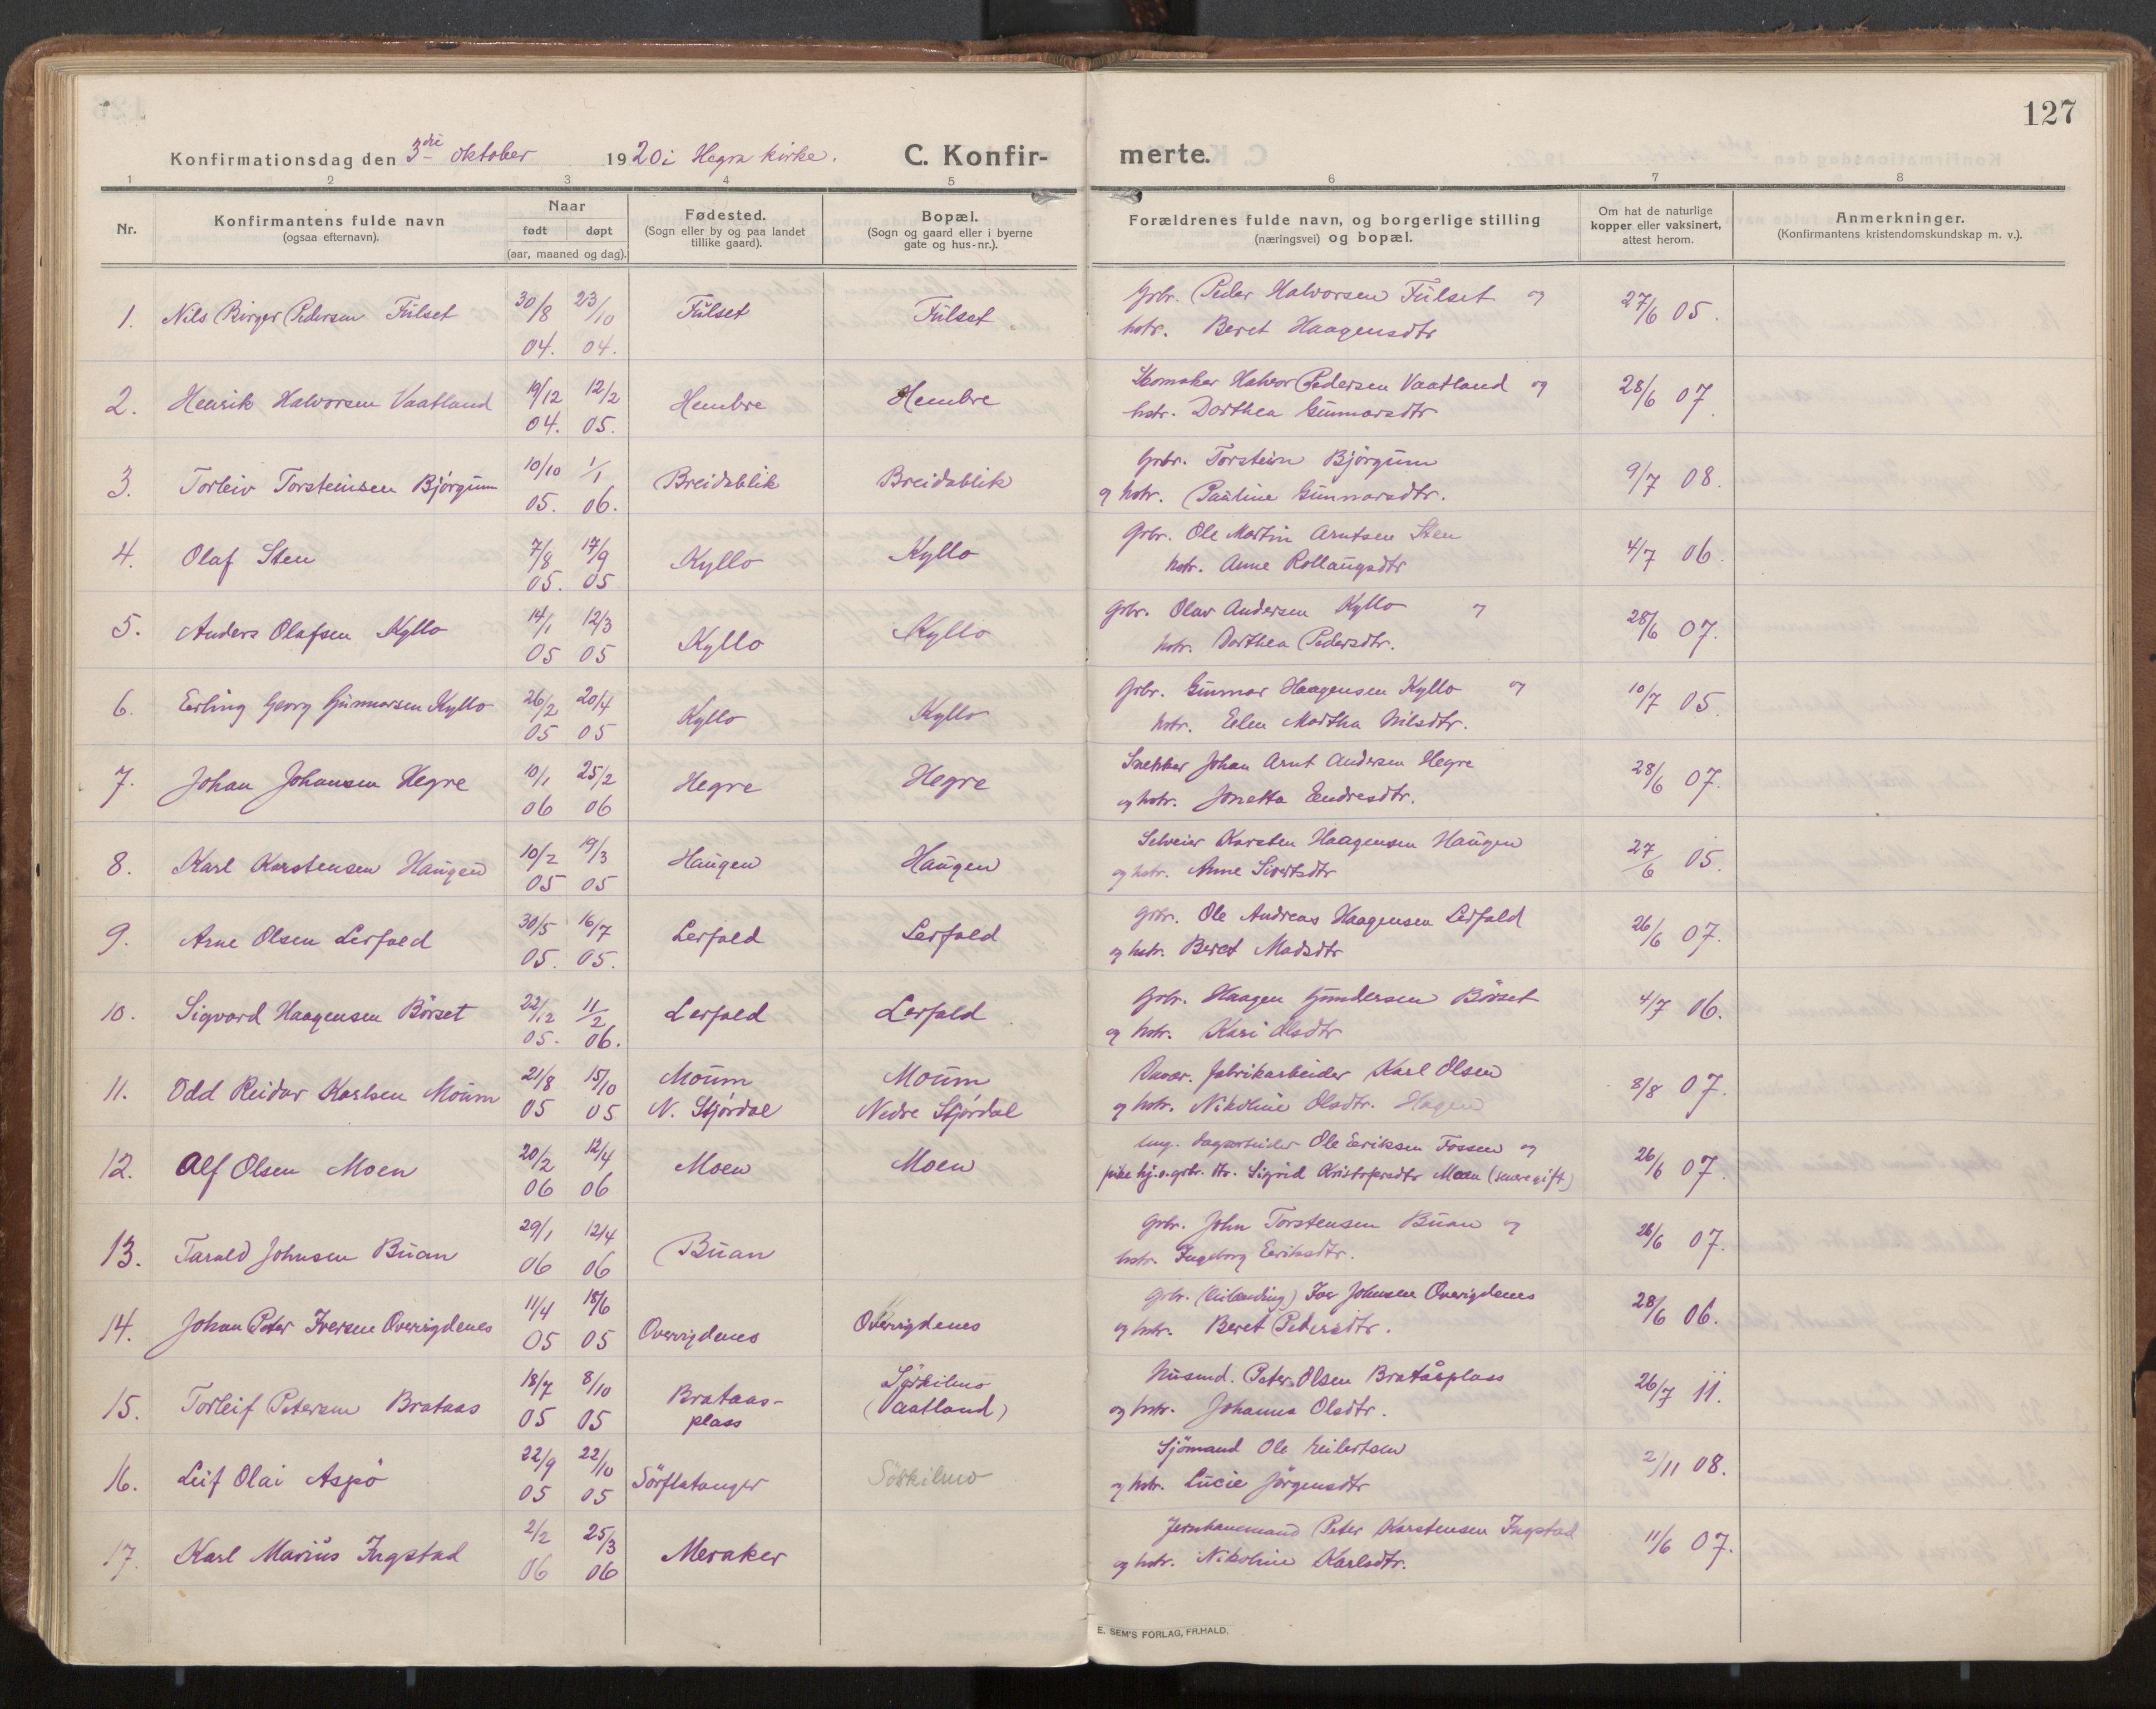 127
Konfirmationsdag den 3die oktober 1920 i Hegra kirke. C. Konfir- merte.
1 2 3 4 5 6 7 8
Nr. Konfirmantens fulde navn (ogsaa efternavn). Naar født døpt (aar, maaned og dag). Fødested. (Sogn eller by og paa landet tillike gaard). Bopæl. (Sogn og gaard eller i byerne gate og hus-nr.). Forældrenes fulde navn, og borgerlige stilling (næringsvei) og bopæl. Om hat de naturlige kopper eller vaksinert, attest herom. Anmerkninger. (Konfirmantens kristendomskundskap m. v.).
1. Nils Birger Pedersen Fulset 30/8 04. 23/10 04. Fulset Fulset Grbr. Peder Halvorsen Fulset og
hstr. Beret Haagensdtr 27/6 05.
2. Henrik Halvorsen Vaatland 19/12 04. 12/2 05. Hembre Hembre Skomaker Halvor Pedersen Vaatland og
hstr. Dorthea Gunnarsdtr 28/6 07.
3. Torleiv Torsteinsen Bjørgum 10/10 05. 1/1 06. Breidablik Breidablik Grbr. Torstein Bjørgum
og hstr. Pauline Gunnarsdtr. 9/7 08.
4. Olaf Sten 7/8 05. 17/9 05 Kyllo Kyllo Grbr. Ole Martin Arntsen Sten
hstr. Anne Rollaugsdtr 4/7 06.
5. Anders Olafsen Kyllo 14/1 05 12/3 05 Kyllo Kyllo Grbr. Olav Andersen Kyllo og
hstr. Dorthea Pedersdtr. 28/6 07.
6. Erling Georg Gunnarsen Kyllo 26/2 05 20/4 05 Kyllo Kyllo Grbr. Gunnar Haagensen Kyllo og
hstr. Elen Martha Nilsdtr. 10/7 05.
7. Johan Johansen Hegre 10/1 06 25/2 06 Hegre Hegre Snekker Johan Arnt Andersen Hegre
og hstr. Jonetta Endresdtr. 28/6 07.
8. Karl Karstensen Haugen 10/2 05 19/3 05 Haugen Haugen Selveier Karsten Haagensen Haugen
og hstr. Anne Sivertsdtr 27/6 05.
9. Arne Olsen Lerfald 30/5 05. 16/7 05. Lerfald Lerfald Grbr. Ole Andreas Haagensen Lerfald
og hstr. Beret Madsdtr 26/6 07.
10. Sigvard Haagensen Børset 22/12 05. 11/2 06. Lerfald Lerfald Grbr. Haagen Gundersen Børset
og hstr. Kari Olsdtr 4/7 06.
11. Odd Reidar Karlsen Moum 21/8 05 15/10 05 Moum N. Stjørdal Moum Nedre Stjørdal Davær. fabrikarbeider Karl Olsen
og hstr. Nikoline Olsdtr. Hagen 8/8 07.
12. Alf Olsen Moen 20/2 06 12/4 06 Moen Moen Ung. dagarbeider Ole Eriksen Fossen og
pike hj.o.grbr. dtr. Sigrid Kristofersdtr Moen (senere gift) 26/6 07.
13. Tarald Johnsen Buan 29/1 06 12/4 06 Buan Grbr. John Torstensen Buan og
hstr. Ingeborg Eriksdtr. 26/6 07.
14. Johan Peter Iversen Overvigdenes 11/4 05 18/6 05 Overvigdenes Overvigdenes Grbr. Iver Johnsen Overvigdenes
og hstr. Beret Pedersdtr. 28/6 06.
15. Torleif Petersen Brataas 18/7 05 8/10 05 Brataas-plass Sørkilmo (Vaatland) Husmd. Peter Olsen Bratåsplass
og hstr. Johanna Olsdtr. 26/7 11.
16. Leif Olai Aspø 22/9 05 22/10 05 Sörflatanger Sørkilmo Sjømand Ole Eilertsen
og hstr. Lucie Jørgensdtr 2/11 08.
17. Karl Marius Ingstad 2/2 06 25/3 06 Meraker Jernbanemand Peter Karstensen Ingstad
og hstr. Nikoline Karlsdtr. 11/6 07.
E. SEM'S FORLAG, FR.HALD.